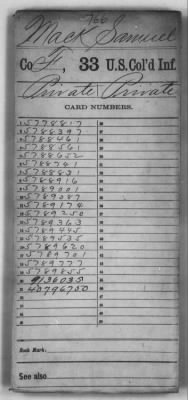 766
Mack Samuel
Co. F, 33 U.S. Col'd Inf.
Private Private
CARD NUMBERS.
15788817
25788397
35788461
45788561
55788652
65788741
75788831
85788916
95789001
105789087
115789174
125789250
135789363
145789445
155789535
165789620
175789701
185789777
195789855
Book Mark:
See also